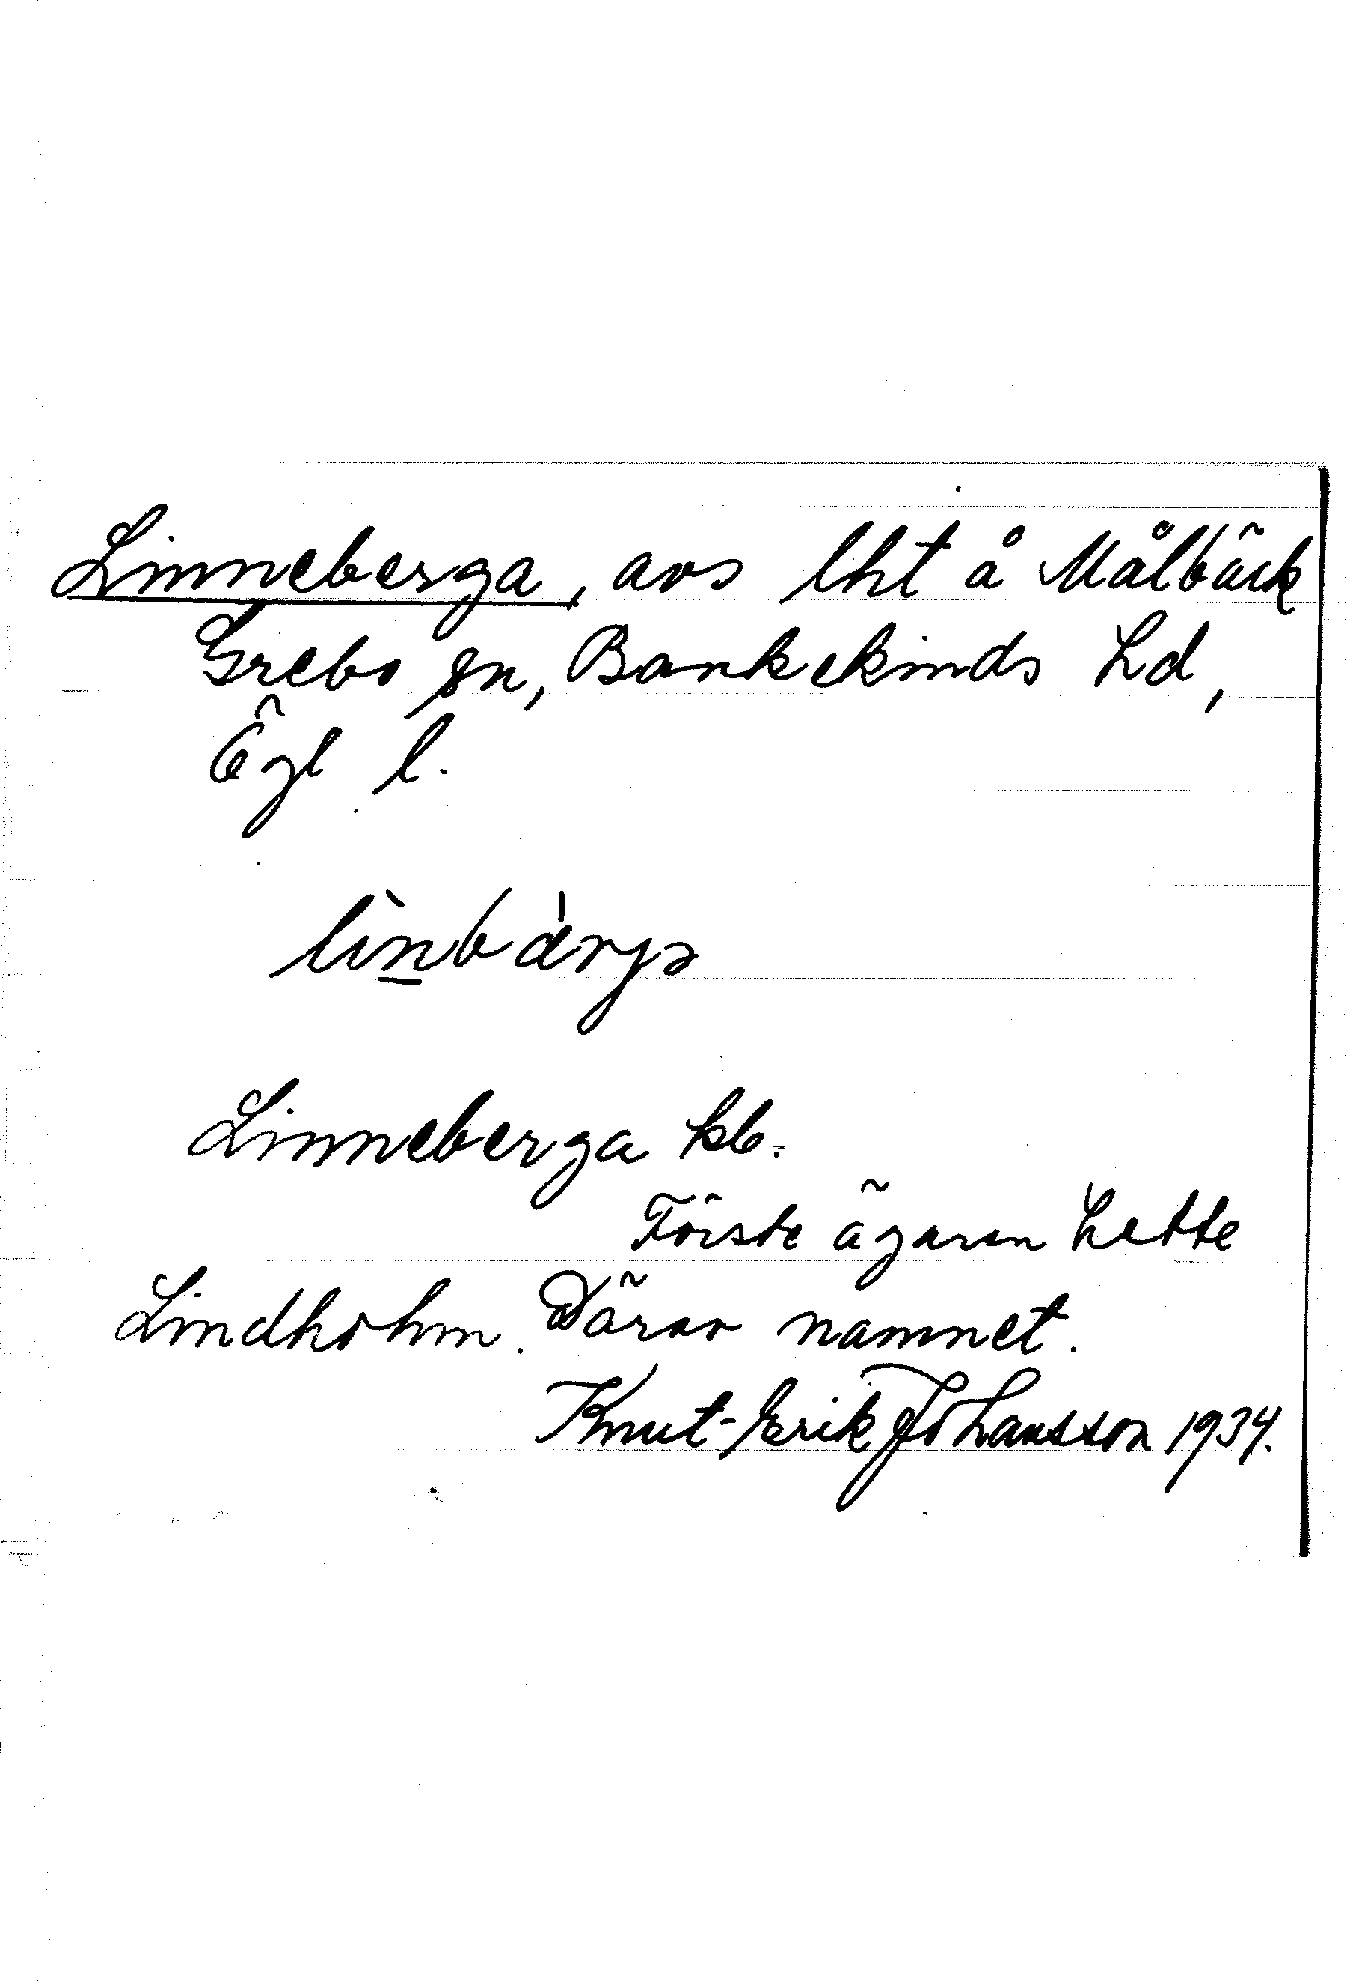 Linneberga, avs lht å Målbäck
Grebo sn, Bankekinds hd,
Ögl l.
Linneberga kb.
Förste ägaren hette
Lindholm. Därav namnet.
Knut-Erik Johansson 1934.